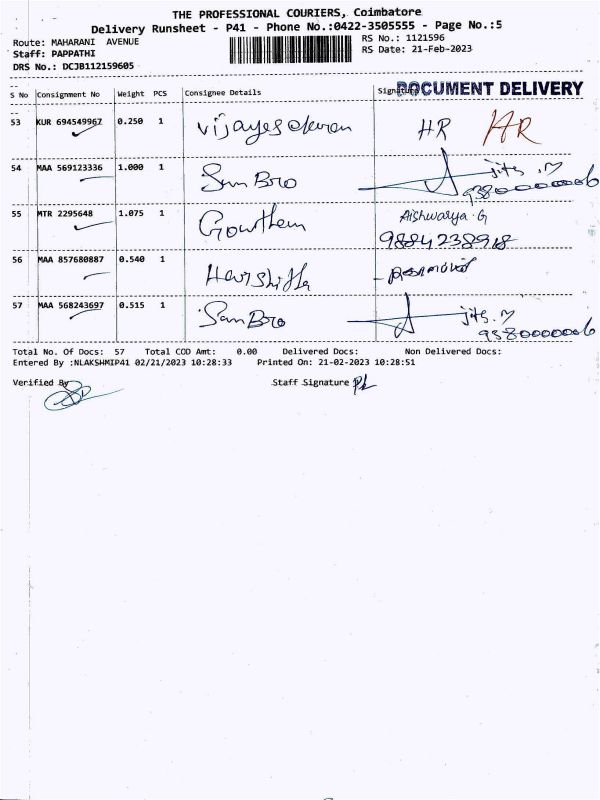 THE PROFESSIONAL COURIERS, Coimbatore
Delivery Runsheet - P41 - Phone No.:0422-3505555 - Page No.:5
Route: MAHARANI AVENUE RS No.: 1121596
Staff: PAPPATHI RS Date: 21-Feb-2023
DRS No.: DCJB112159605
DOCUMENT DELIVERY
S No Consignment No Weight PCS Consignee Details Signature
53 KUR 694549967 0.250 1 HR HR
54 MAA 569123336 1.000 1 Sun Bro
55 MTR 2295648 1.075 1 Gowthem Aishwarya G
9884238918
56 MAA 857680887 0.540 1 Harshitha
57 MAA 568243697 0.515 1 Sam Bro
Total No. Of Docs: 57 Total COD Amt: 0.00 Delivered Docs: Non Delivered Docs:
Entered By :NLAKSHMIP41 02/21/2023 10:28:33 Printed On: 21-02-2023 10:28:51
Verified By Staff Signature